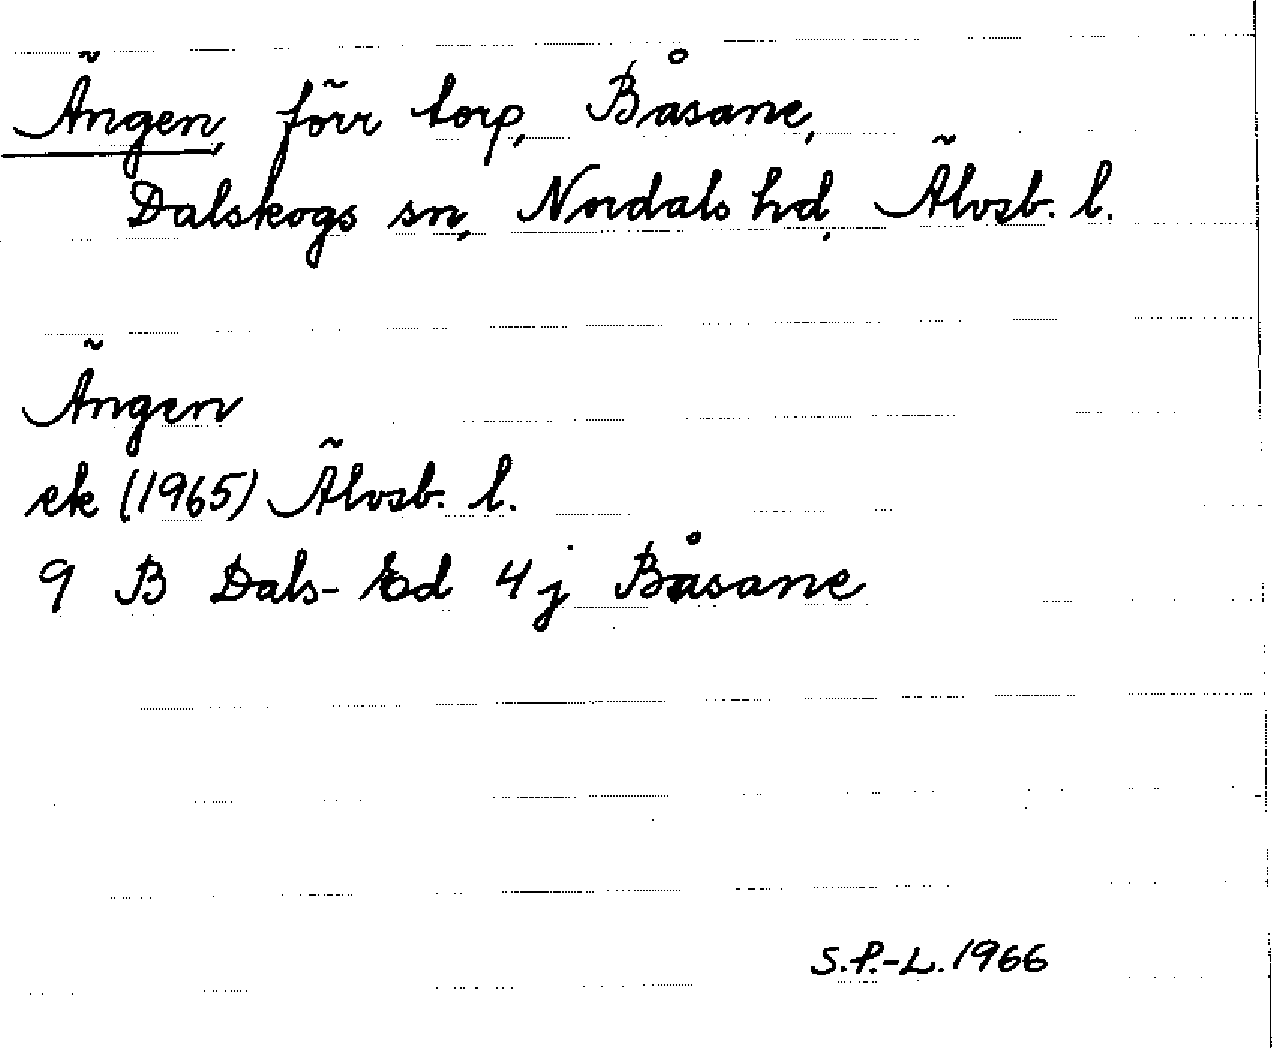 Ängen, förr torp, Båsane,
Dalskogs sn, Nordals hd, Älvsb. l.
Ängen
ek (1965) Älvsb. l.
9 B Dals-Ed 4 j Båsane
S.P.-L. 1966